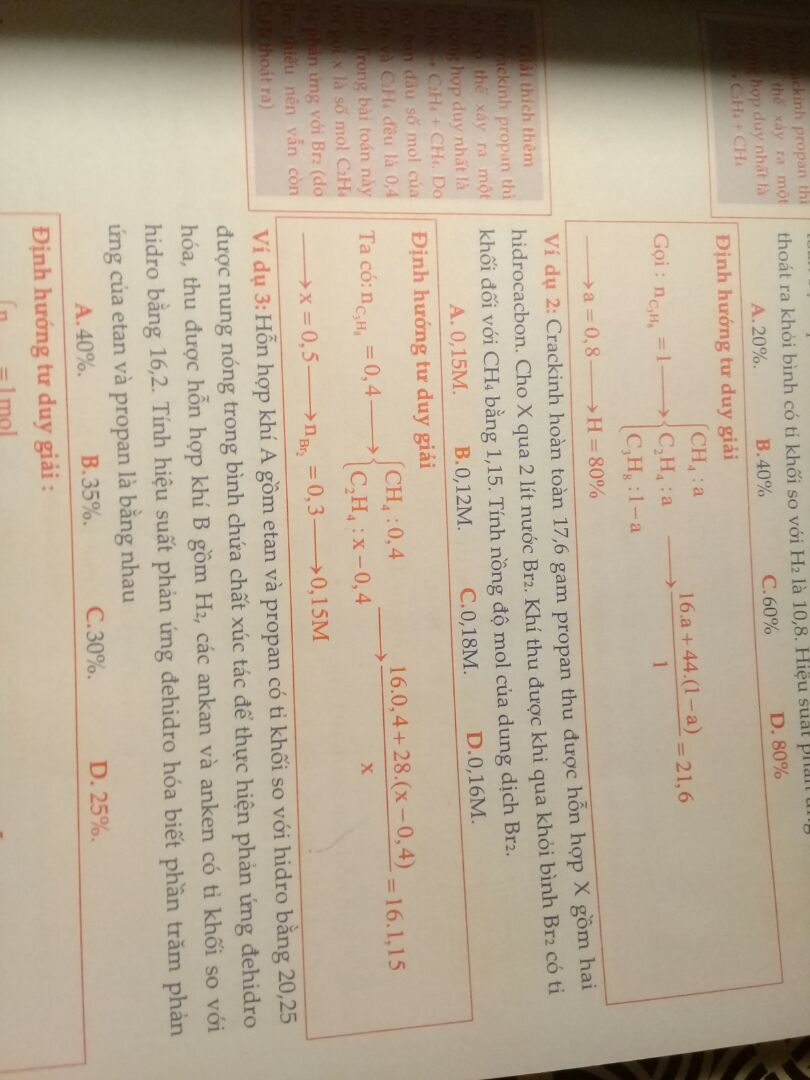 crackinh propan thì
thể xảy ra một
hợp duy nhất là
C₂H₄ + CH₄
thoát ra khỏi bình có tỉ khối so với H₂ là 10,8. Hiệu suất phản ứng
A. 20%. B. 40% C. 60% D. 80%
Định hướng tư duy giải
Gọi : n_{C₃H₈} = 1 ⟶ { CH₄ : a; C₂H₄ : a; C₃H₈ : 1 – a ⟶ (16.a + 44.(1 – a))/1 = 21,6
⟶ a = 0,8 ⟶ H = 80%
Ví dụ 2: Crackinh hoàn toàn 17,6 gam propan thu được hỗn hợp X gồm hai
hidrocacbon. Cho X qua 2 lít nước Br₂. Khí thu được khi qua khỏi bình Br₂ có tỉ
khối đối với CH₄ bằng 1,15. Tính nồng độ mol của dung dịch Br₂.
A. 0,15M. B. 0,12M. C. 0,18M. D. 0,16M.
Giải thích thêm
Khi crackinh propan thì
chỉ có thể xảy ra một
trường hợp duy nhất là
C₂H₄ + CH₄. Do
ban đầu số mol của
CH₄ và C₂H₄ đều là 0,4
mol. Trong bài toán này
tôi gọi x là số mol C₂H₄
phản ứng với Br₂ (do
Br₂ thiếu nên vẫn còn
C₂H₄ thoát ra)
Định hướng tư duy giải
Ta có: n_{C₃H₈} = 0,4 ⟶ { CH₄ : 0,4; C₂H₄ : x – 0,4 ⟶ (16.0,4 + 28.(x – 0,4))/x = 16.1,15
⟶ x = 0,5 ⟶ n_{Br₂} = 0,3 ⟶ 0,15M
Ví dụ 3: Hỗn hợp khí A gồm etan và propan có tỉ khối so với hidro bằng 20,25
được nung nóng trong bình chứa chất xúc tác để thực hiện phản ứng đehidro
hóa, thu được hỗn hợp khí B gồm H₂, các ankan và anken có tỉ khối so với
hidro bằng 16,2. Tính hiệu suất phản ứng đehidro hóa biết phần trăm phản
ứng của etan và propan là bằng nhau
A. 40%. B. 35%. C. 30%. D. 25%.
Định hướng tư duy giải :
= 1 mol